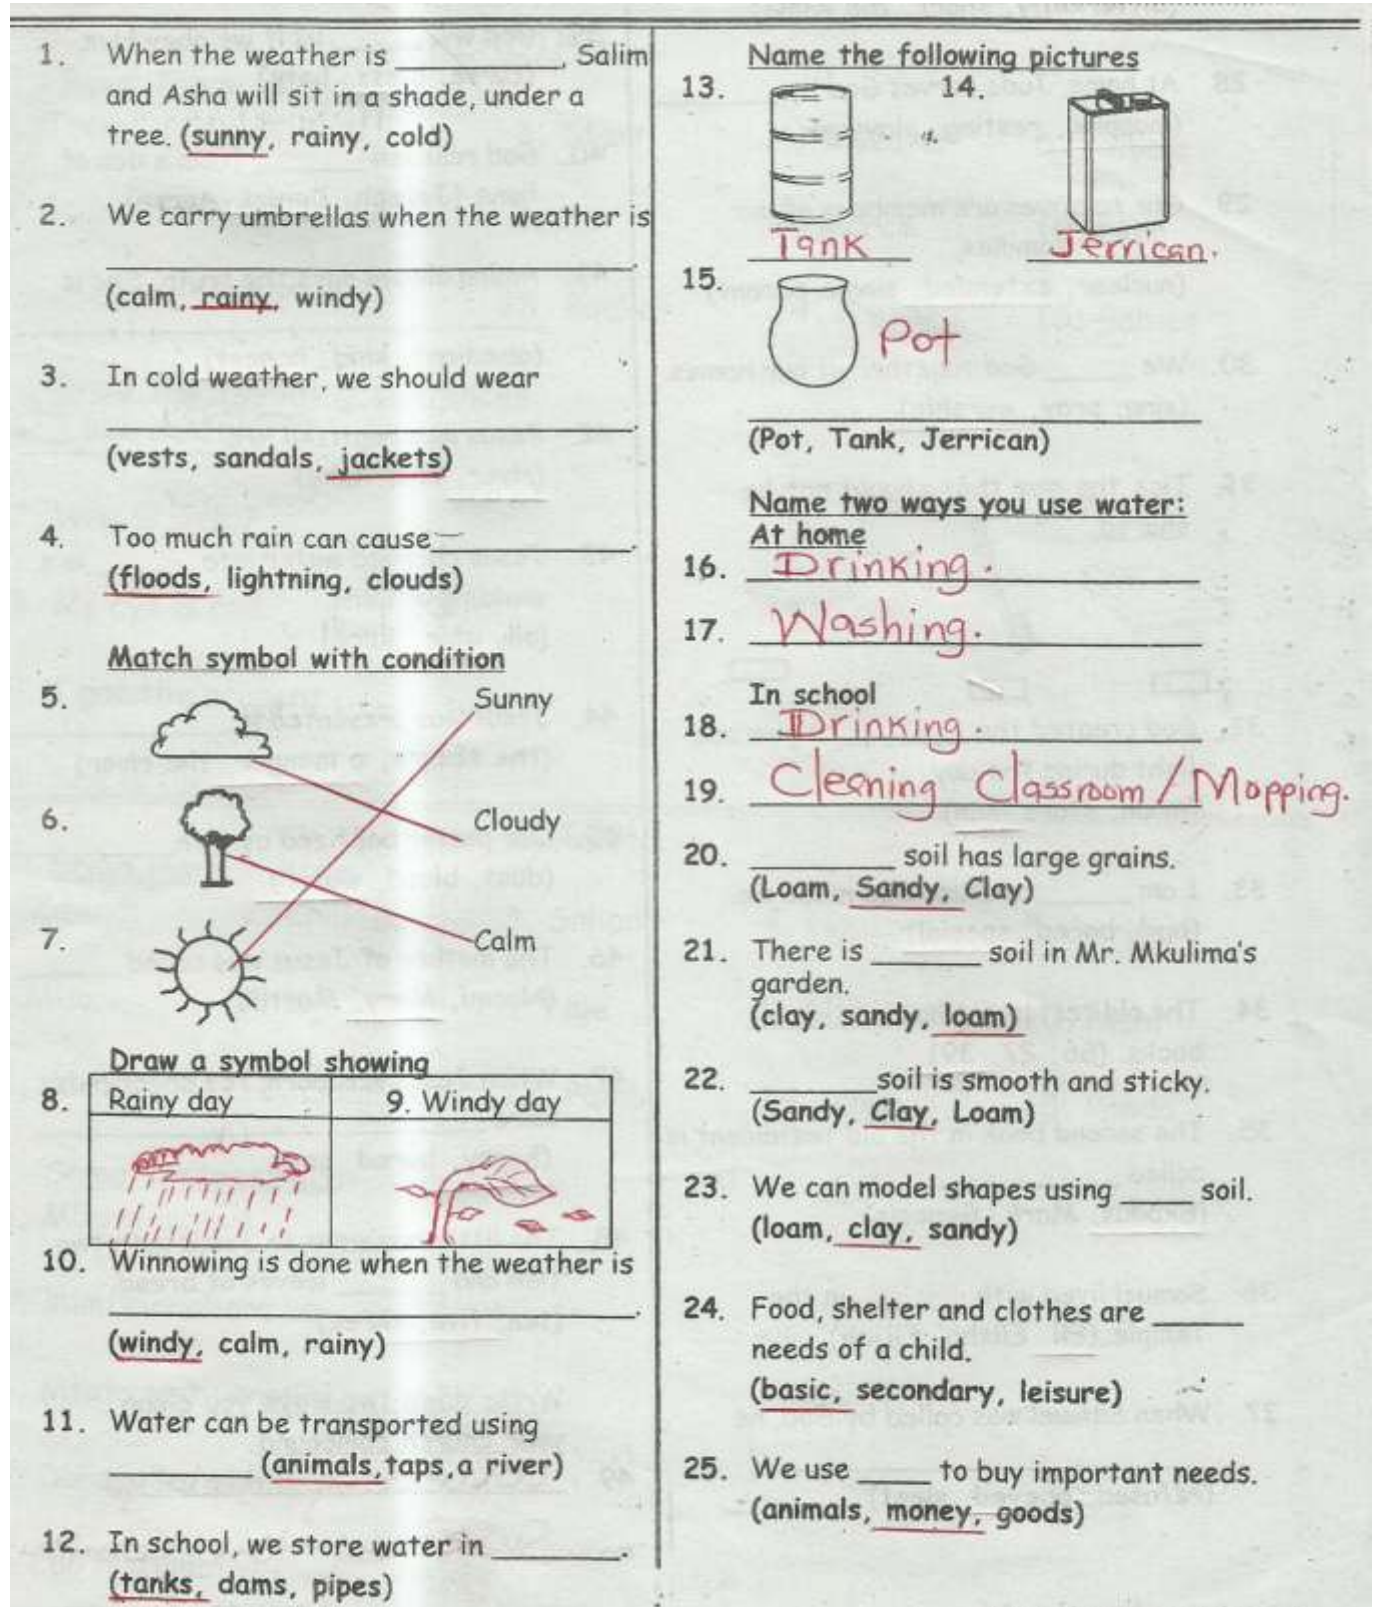 1. When the weather is __________, Salim
and Asha will sit in a shade, under a
tree. (sunny, rainy, cold)
2. We carry umbrellas when the weather is
______________________________.
(calm, rainy, windy)
3. In cold weather, we should wear
______________________________.
(vests, sandals, jackets)
4. Too much rain can cause____________.
(floods, lightning, clouds)
Match symbol with condition
5. Sunny
6. Cloudy
7. Calm
Draw a symbol showing
8. Rainy day 9. Windy day
10. Winnowing is done when the weather is
______________________________.
(windy, calm, rainy)
11. Water can be transported using
_________ (animals, taps, a river)
12. In school, we store water in ________.
(tanks, dams, pipes)
Name the following pictures
13. 14.
Tank Jerrican.
15.
Pot
(Pot, Tank, Jerrican)
Name two ways you use water:
At home
16. Drinking.
17. Washing.
In school
18. Drinking.
19. Cleaning Classroom / Mopping.
20. _________ soil has large grains.
(Loam, Sandy, Clay)
21. There is _______ soil in Mr. Mkulima's
garden.
(clay, sandy, loam)
22. ________soil is smooth and sticky.
(Sandy, Clay, Loam)
23. We can model shapes using _____ soil.
(loam, clay, sandy)
24. Food, shelter and clothes are ______
needs of a child.
(basic, secondary, leisure)
25. We use _____ to buy important needs.
(animals, money, goods)